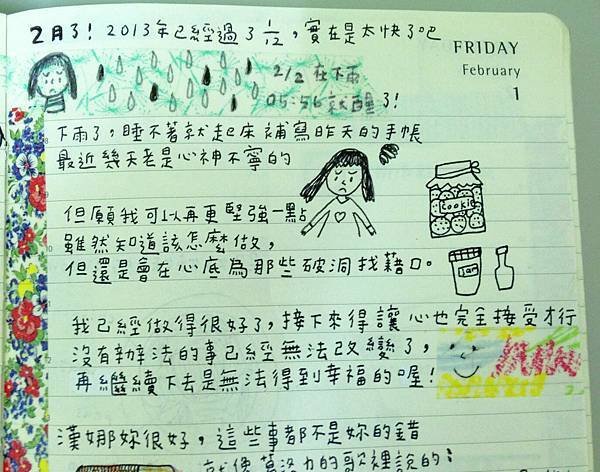 2月了！2013年已經過了1/12，實在是太快了吧
FRIDAY
February
1
2/2 在下雨
05:56就醒了！
下雨了，睡不著就起床補寫昨天的手帳
最近幾天老是心神不寧的
但願我可以再更堅強一點
雖然知道該怎麼做，
但還是會在心底為那些破洞找藉口。
Cookie
Jam
我已經做得很好了，接下來得讓心也完全接受才行
沒有辦法的事已經無法改變了，
再繼續下去是無法得到幸福的喔！
漢娜妳很好，這些事都不是妳的錯
就像葛洛力的歌裡說的：